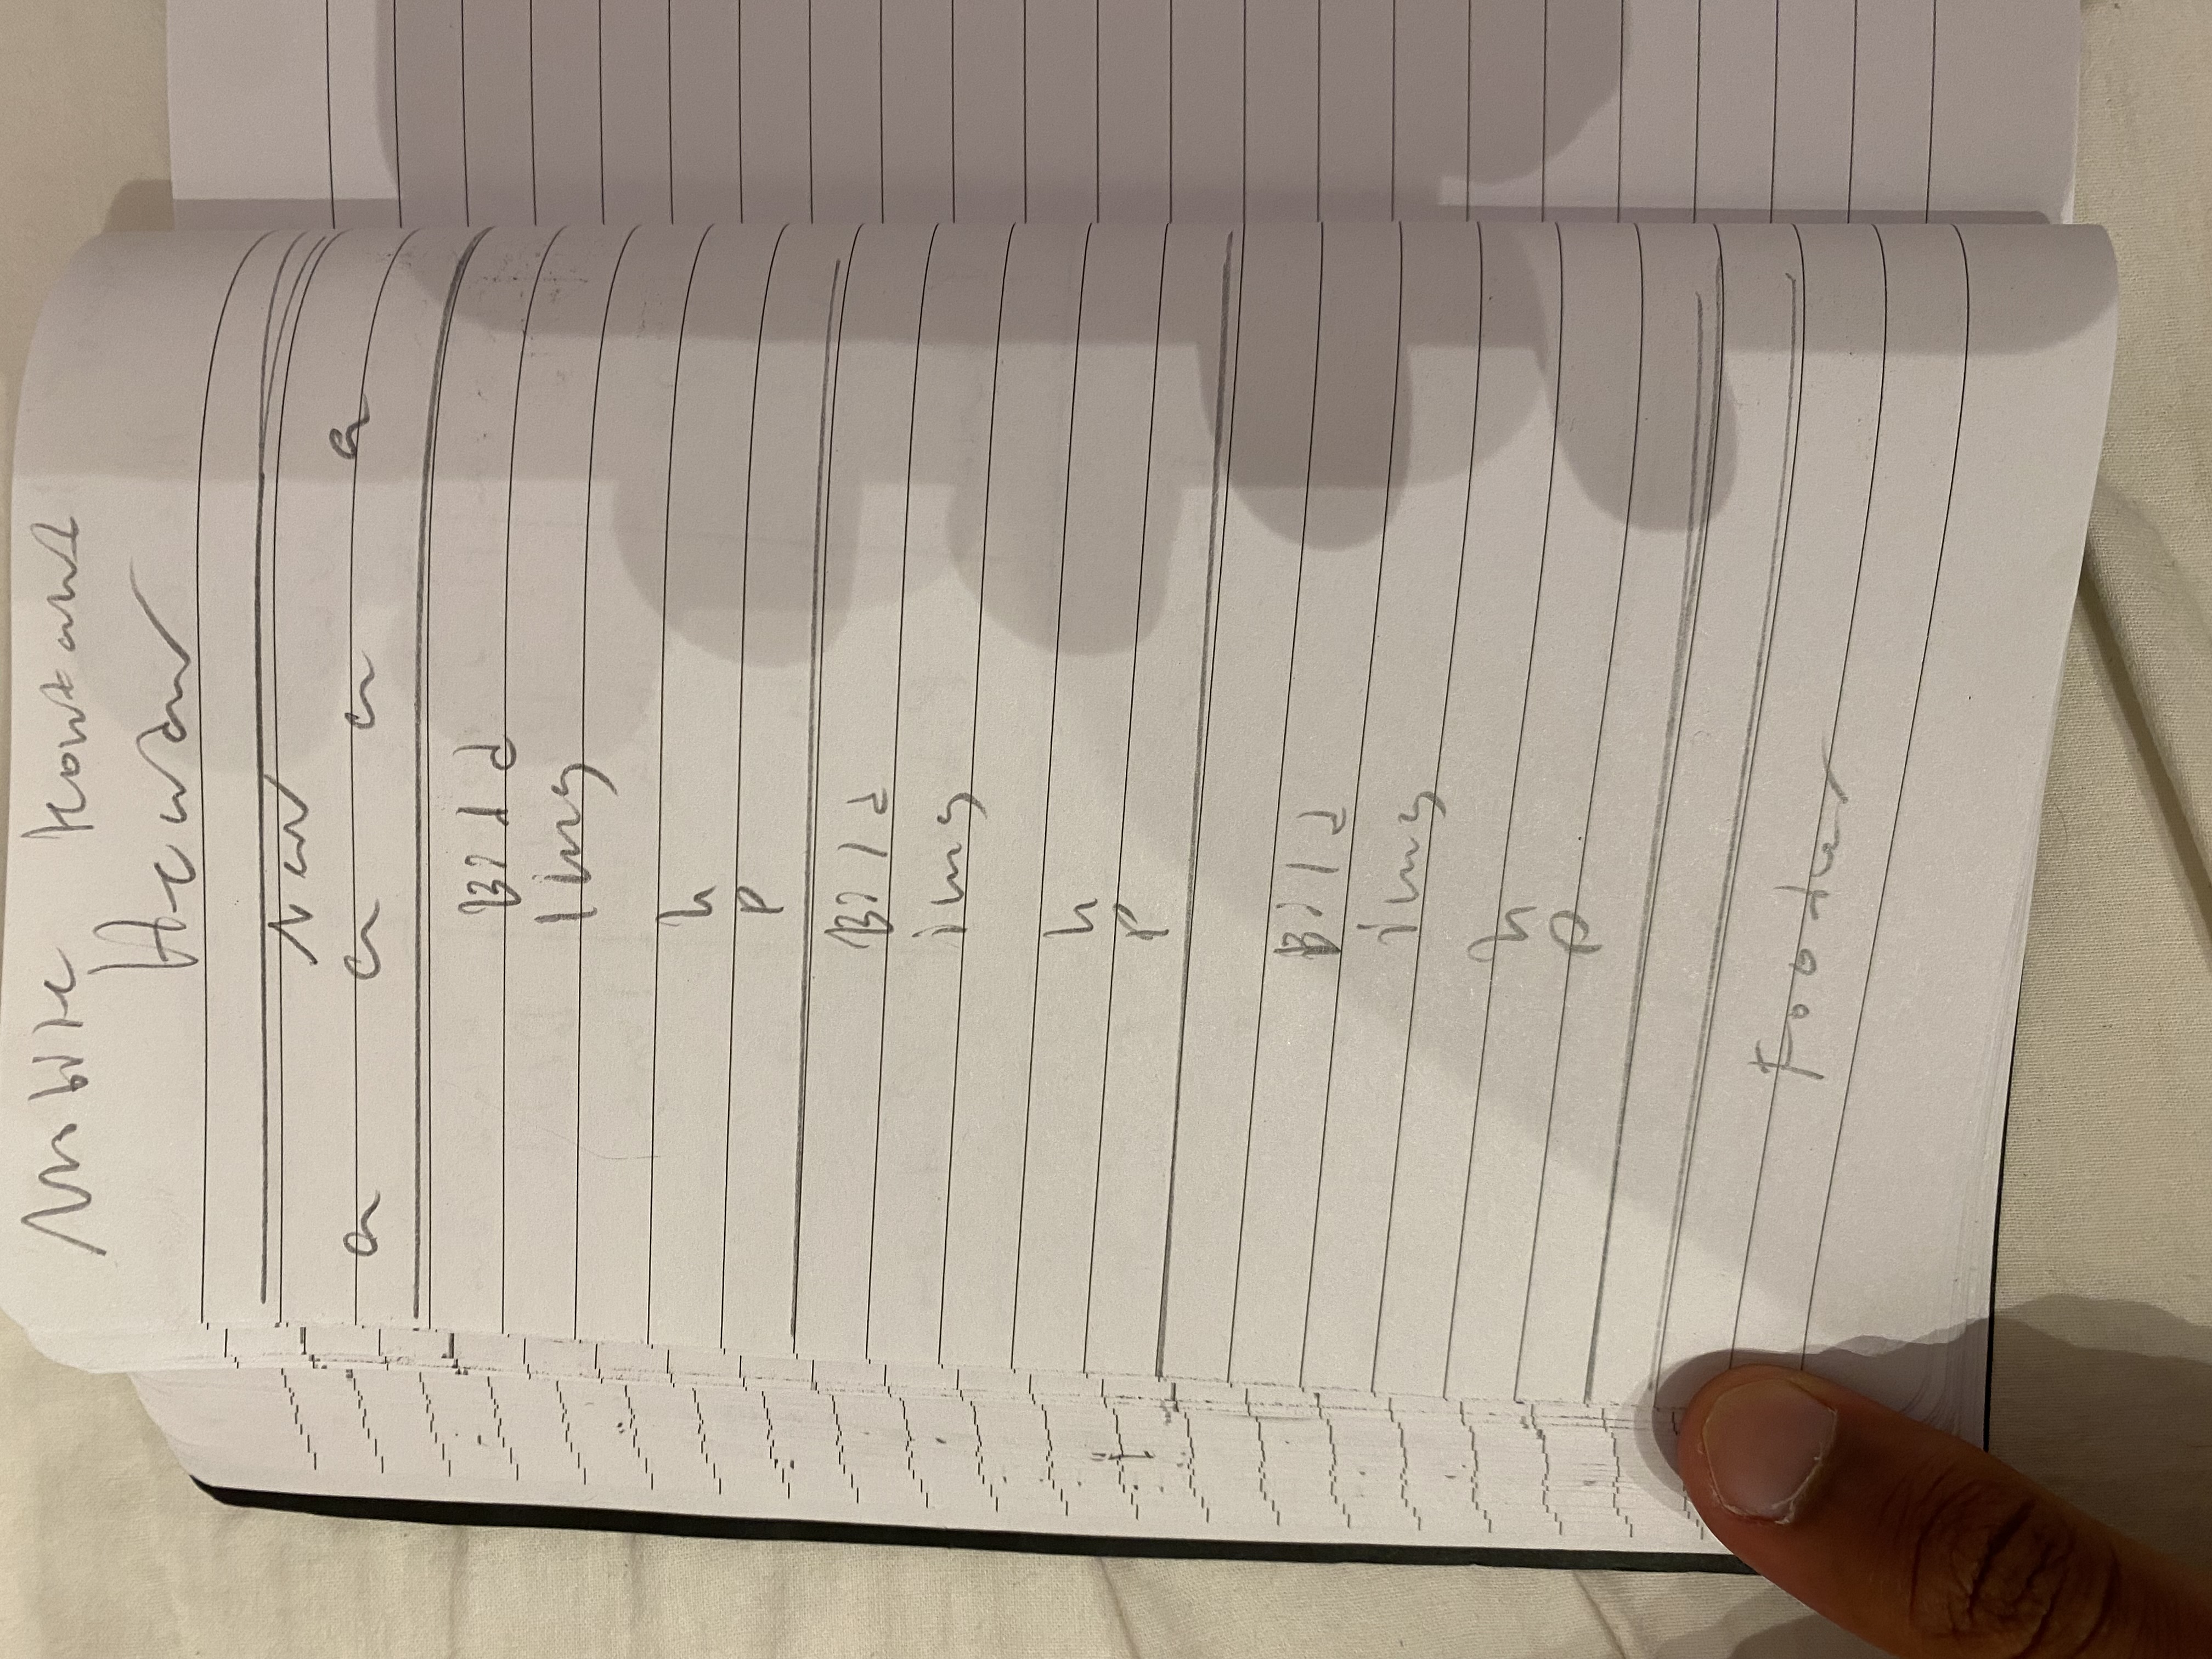 Mobile Kontakt
Header
Nav
a a a a
Bild
img
h
P
Bild
img
h
P
Bild
img
h
P
Footer